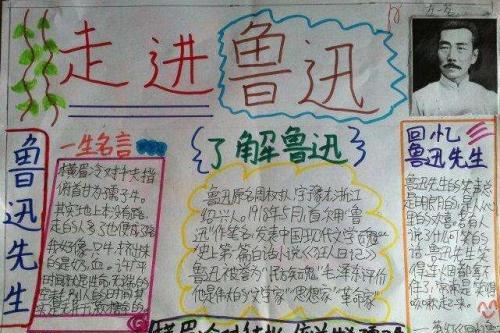 走进鲁迅
鲁迅先生
一生名言
横眉冷对千夫指
俯首甘为孺子牛。
其实地上本没有路,
走的人多了也便成了路
我好像一只牛,挤出来
的是奶,血。
时间就是性命,无端的
了解鲁迅
鲁迅原名周树人,字豫才,浙江
绍兴人。1918年5月,首次用“鲁
迅”作笔名,发表中国现代文学
史上第一篇白话小说《狂人日记》
鲁迅被誉为“民族魂”毛泽东评价
他是伟大的文学家“思想家”革命家
回忆
鲁迅先生
鲁迅先生的笑声
是明朗的,是从心
里的欢喜。若有人
说了什么可笑的
话,鲁迅先生笑
得连烟卷都拿不
住了,常常是笑得
咳嗽起来。
横眉冷对千夫指